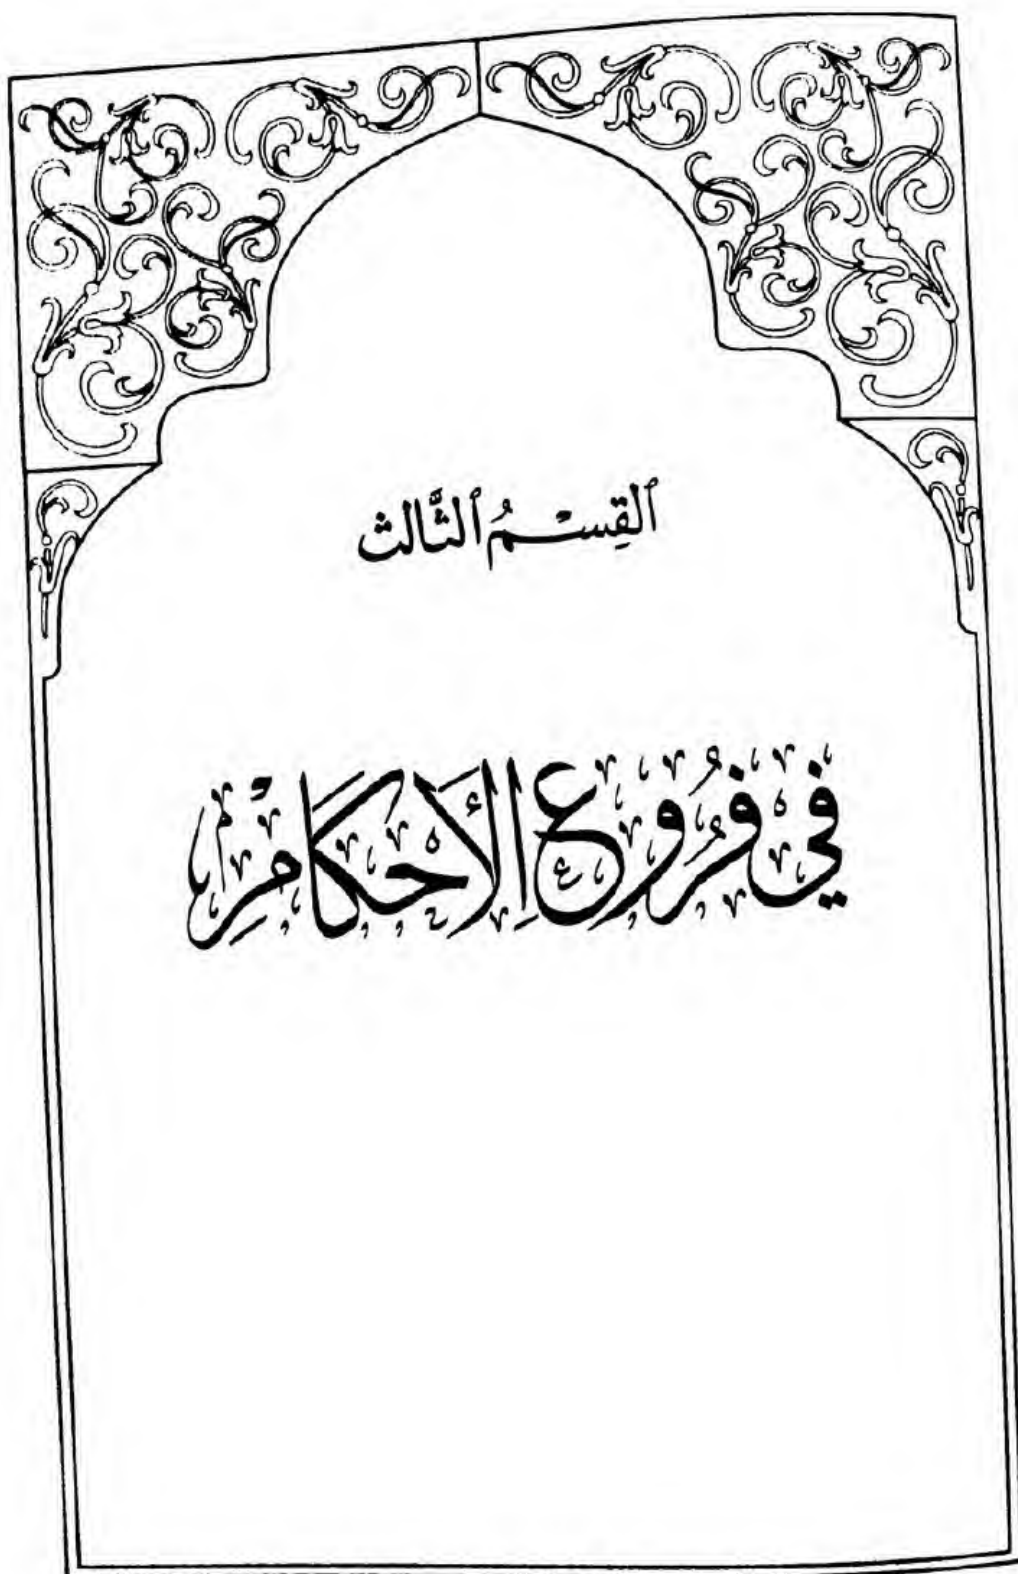 ٱلقِسْمُ ٱلثَّالث
في فُرُوعِ الأَحْكَامِ